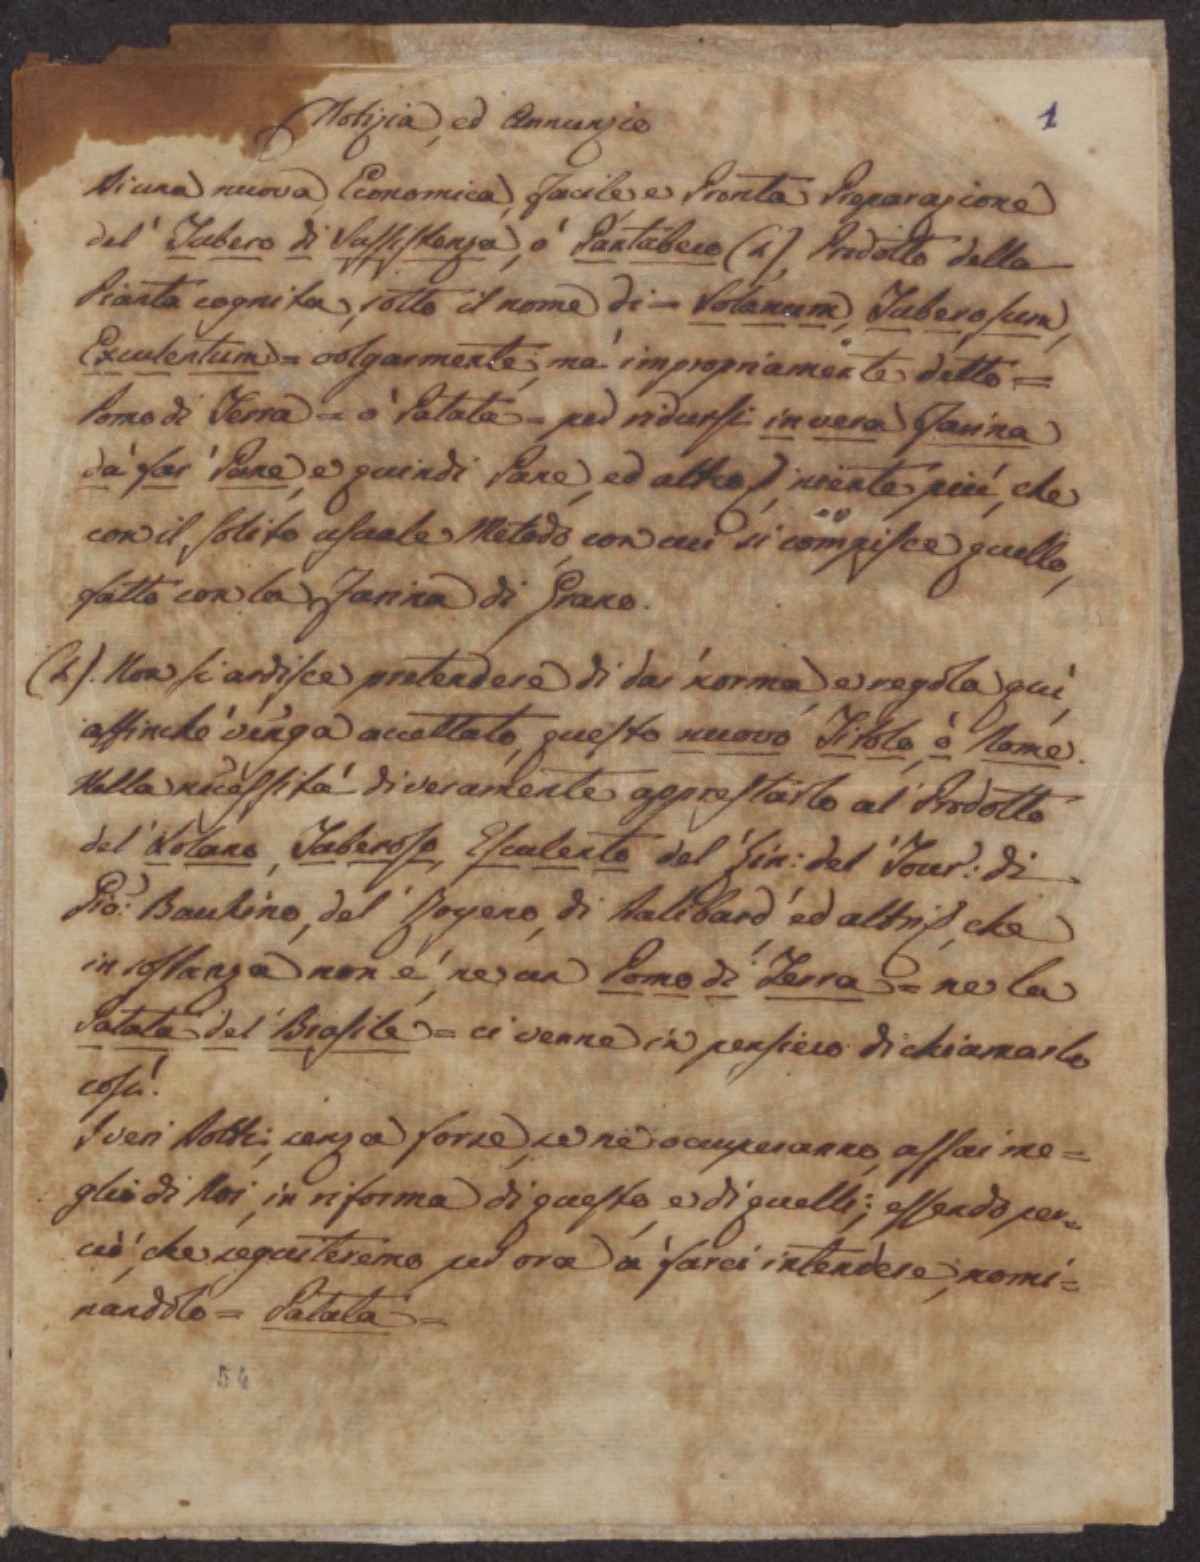 Notizia, ed Annunzio
1
Di una nuova, Economica, facile e Pronta Preparazione
del' Tubero di Sussistenza, ó Pantúbero (1), Prodotto della
Pianta cognita, sotto il nome di = Solanum, Tuberosum,
Exculentum = volgarmente, má impropriamente detto =
Pomo di Terra = o' Patata = per ridursi in vera Farina
dá far' Pane, e quindi Pane, ed altro, niente più, che
con il solito usuale Metodo, con cui si compisce quello,
fatto con la Farina di Grano.
(1). Non si ardisce pretendere di dar' norma, e regola quì,
affinché venga accettato, questo nuovo Titolo, ò Nome.
Nella necessitá diversamente apprestarlo al' Prodotto
del' Solano, Tuberoso, Esculento del' Lin: del' Tour: di
Gio: Bauhino, del' Boyero, di Dalibard' ed altri, che
in sostanza non é, ne un Pomo di Terra = ne la
Patata del' Brasile = ci venne in pensiero di chiamarlo
cosí.
I veri Dotti, senza forse, se ne occuperanno, assai me=
glio di Noi, in riforma di questo, e di quelli; essendo per=
ció, che seguiteremo per ora á farci intendere, nomi=
nandolo = Patata =
54